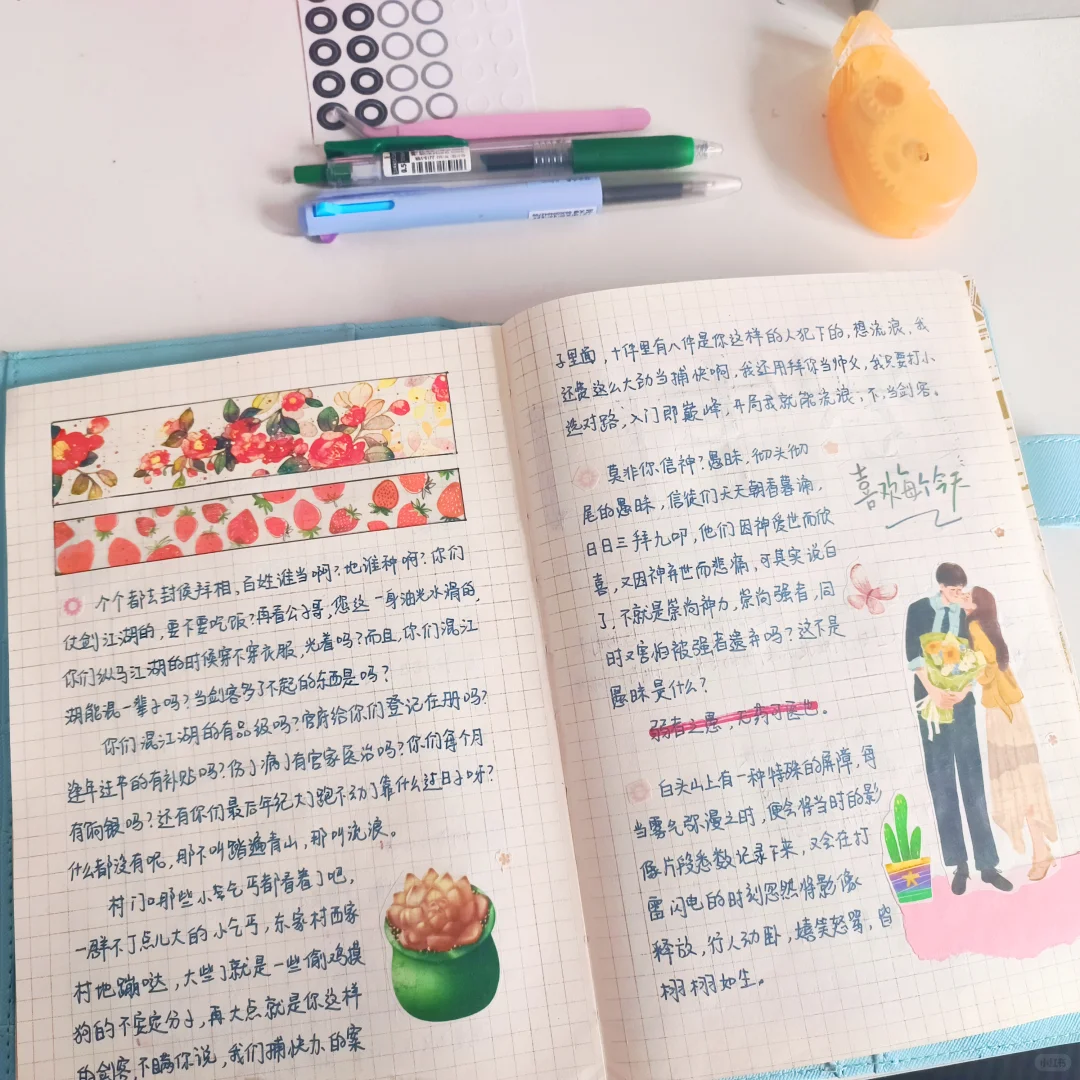 个个都去封侯拜相，百姓谁当啊？地谁种啊？你们
仗剑江湖的，要不要吃饭？再看公子哥，您这一身油光水滑的，
你们纵马江湖的时候穿不穿衣服，光着吗？而且，你们混江
湖能混一辈子吗？当剑客多了不起的东西是吗？
你们混江湖的有品级吗？官府给你们登记在册吗？
逢年过节的有补贴吗？伤了病了有官家医治吗？你们每个月
有饷银吗？还有你们最后年纪大了跑不动了靠什么过日子呀？
什么都没有呢，那不叫踏遍青山，那叫流浪。
村门口那些小乞丐都看着了吧，
一群不丁点儿大的小乞丐，东家村西家
村地蹦哒，大些了就是一些偷鸡摸
狗的不安定分子，再大点就是你这样
的剑客，不瞒你说，我们捕快办的案
子里面，十件里有八件是你这样的人犯下的，想流浪，我
还费这么大劲当捕快啊，我还用拜你当师父，我只要打小
选对路，入门即巅峰，开局我就能流浪，不，当剑客。
莫非你信神？愚昧，彻头彻
尾的愚昧，信徒们天天朝香暮诵，
日日三拜九叩，他们因神爱世而欣
喜，又因神弃世而悲痛，可其实说白
了，不就是崇尚神力，崇尚强者，同
时又害怕被强者遗弃吗？这不是
愚昧是什么？
弱者之愚，无药可医也。
白头山上有一种特殊的屏障，每
当雾气弥漫之时，便会将当时的影
像片段悉数记录下来，又会在打
雷闪电的时刻忽然将影像
释放，行人动卧，嬉笑怒骂，皆
栩栩如生。
喜欢每个今天